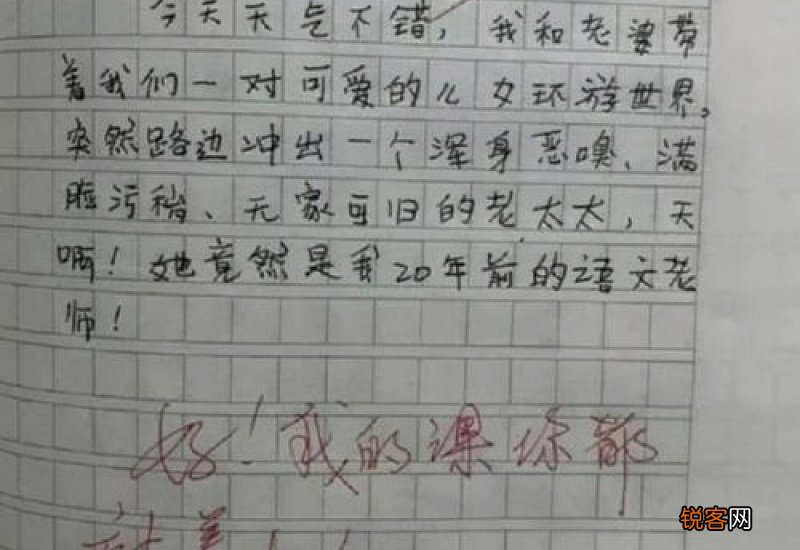 今天天气不错，我和老婆带
着我们一对可爱的儿女环游世界，
突然路边冲出一个浑身恶嗅、满
脸污稍、无家可旧的老太太，天
啊！她竟然是我20年前的语文老
师！
好！我的课你都
锐客网